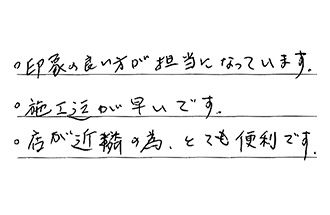 。印象の良い方が担当になっています。
。施工迄が早いです。
。店が近隣の為、とても便利です。